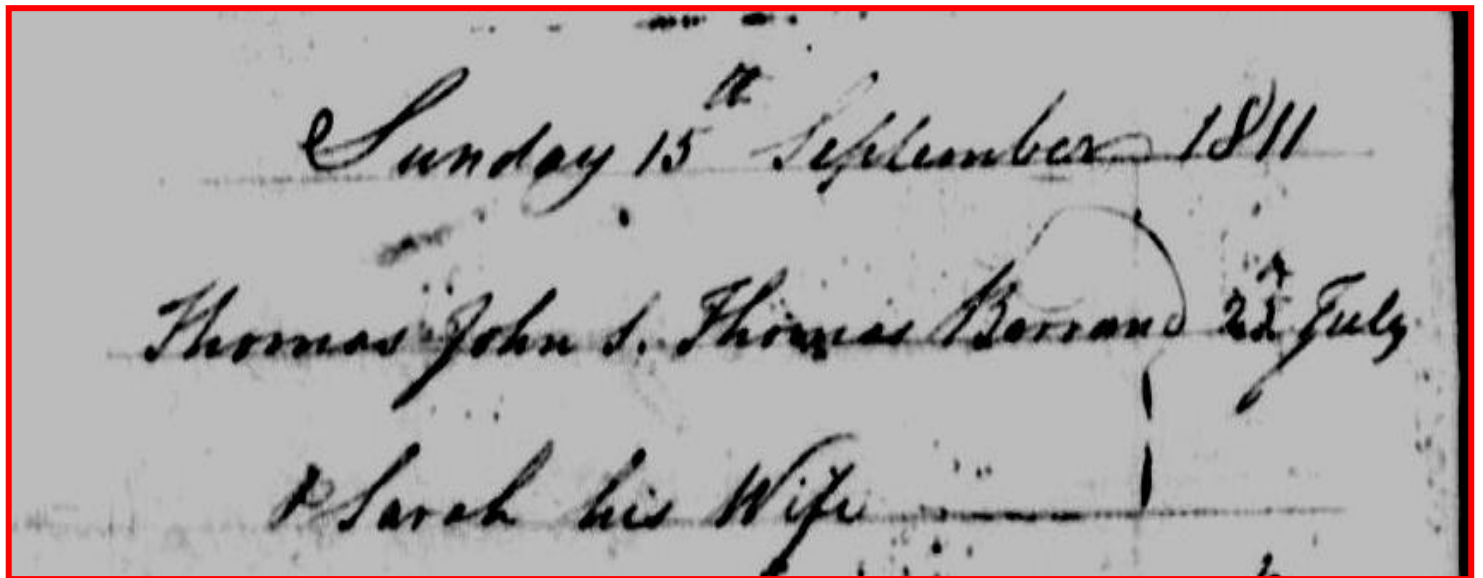 Sunday 15th September 1811
Thomas John s. Thomas Barrand 25 July
& Sarah his Wife